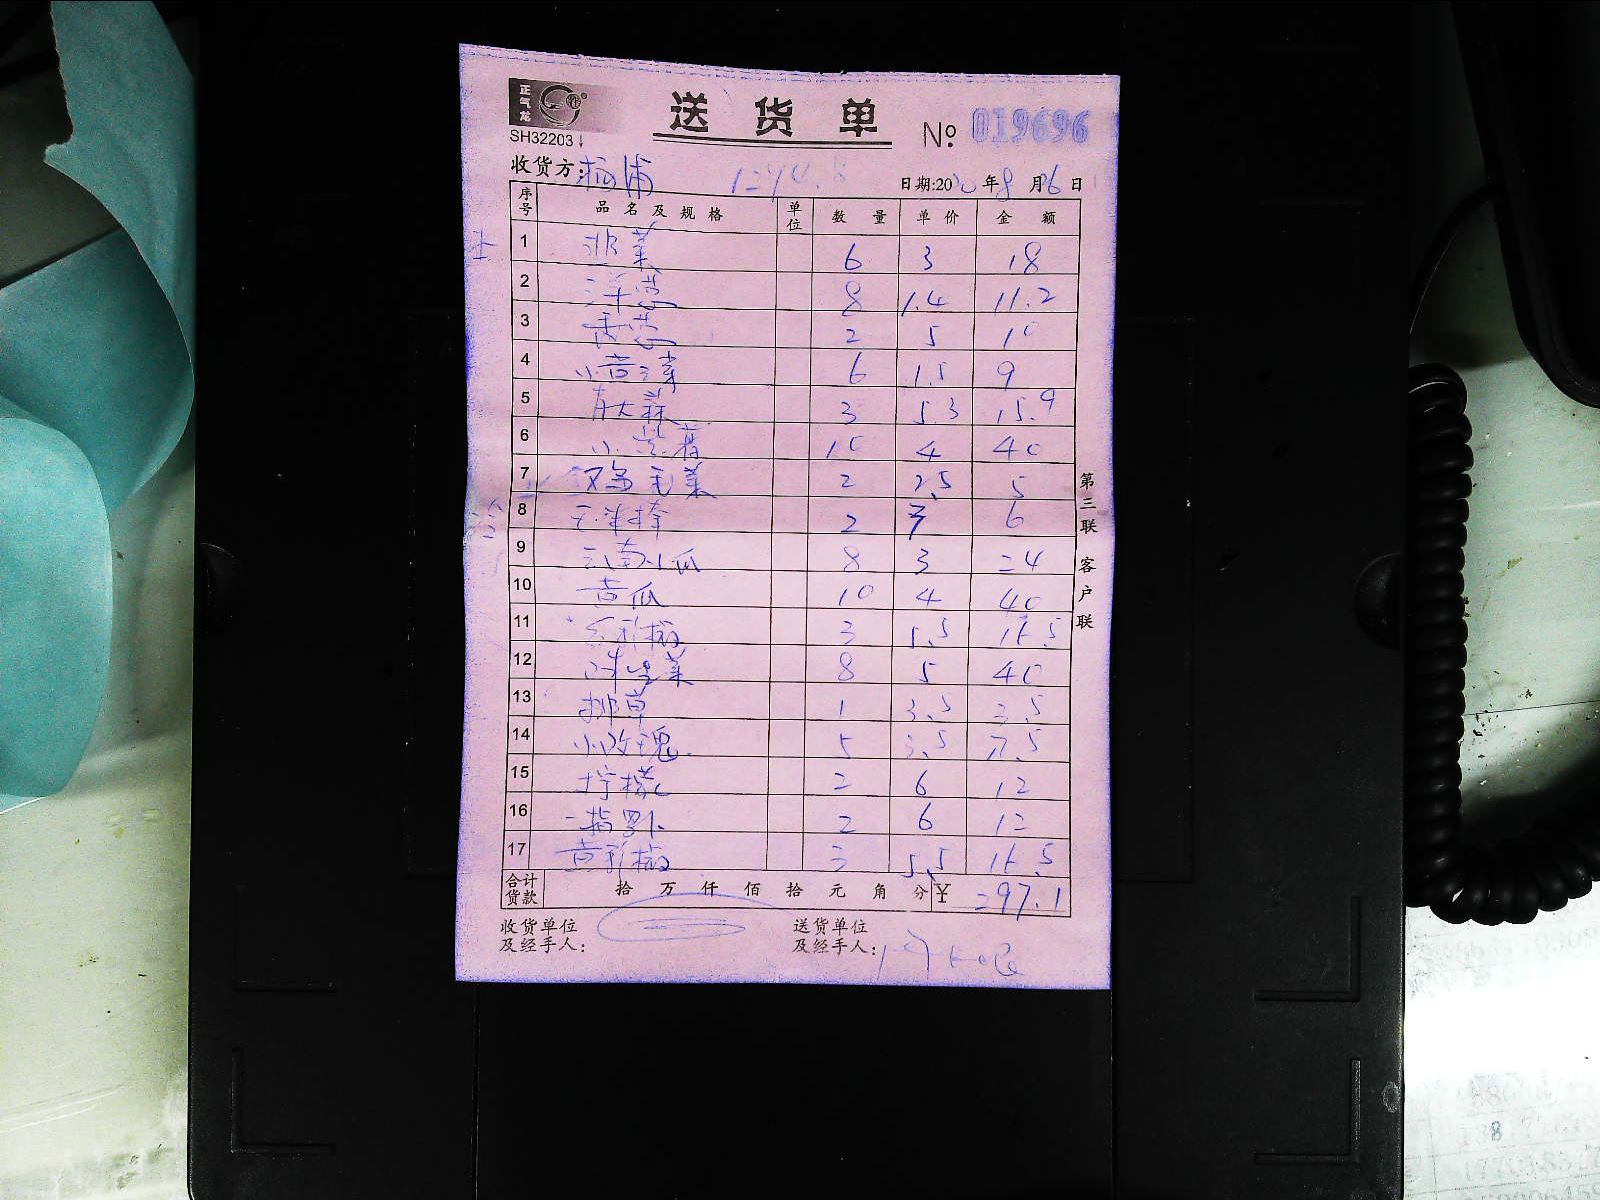 正气龙
送货单
SH32203
№ 019696
收货方: 杨浦
日期:20 年 8 月 26 日
序号 品名及规格 单位 数量 单价 金额
1 韭菜 6 3 18
2 洋葱 8 1.4 11.2
3 香葱 2 5 10
4 小黄 6 1.5 9
5 大蒜 3 5.3 15.9
6 小紫薯 10 4 40
7 鸡毛菜 2 2.5 5
8 2 3 6
9 云南小瓜 8 3 24
10 黄瓜 10 4 40
11 红彩椒 3 5.5 16.5
12 生菜 8 5 40
13 排草 1 3.5 3.5
14 小玫瑰 5 3.5 17.5
15 柠檬 2 6 12
16 指萝卜 2 6 12
17 黄彩椒 3 5.5 16.5
合计货款 拾 万 仟 佰 拾 元 角 分 ¥ 297.1
收货单位及经手人:
送货单位及经手人:
第三联 客户联